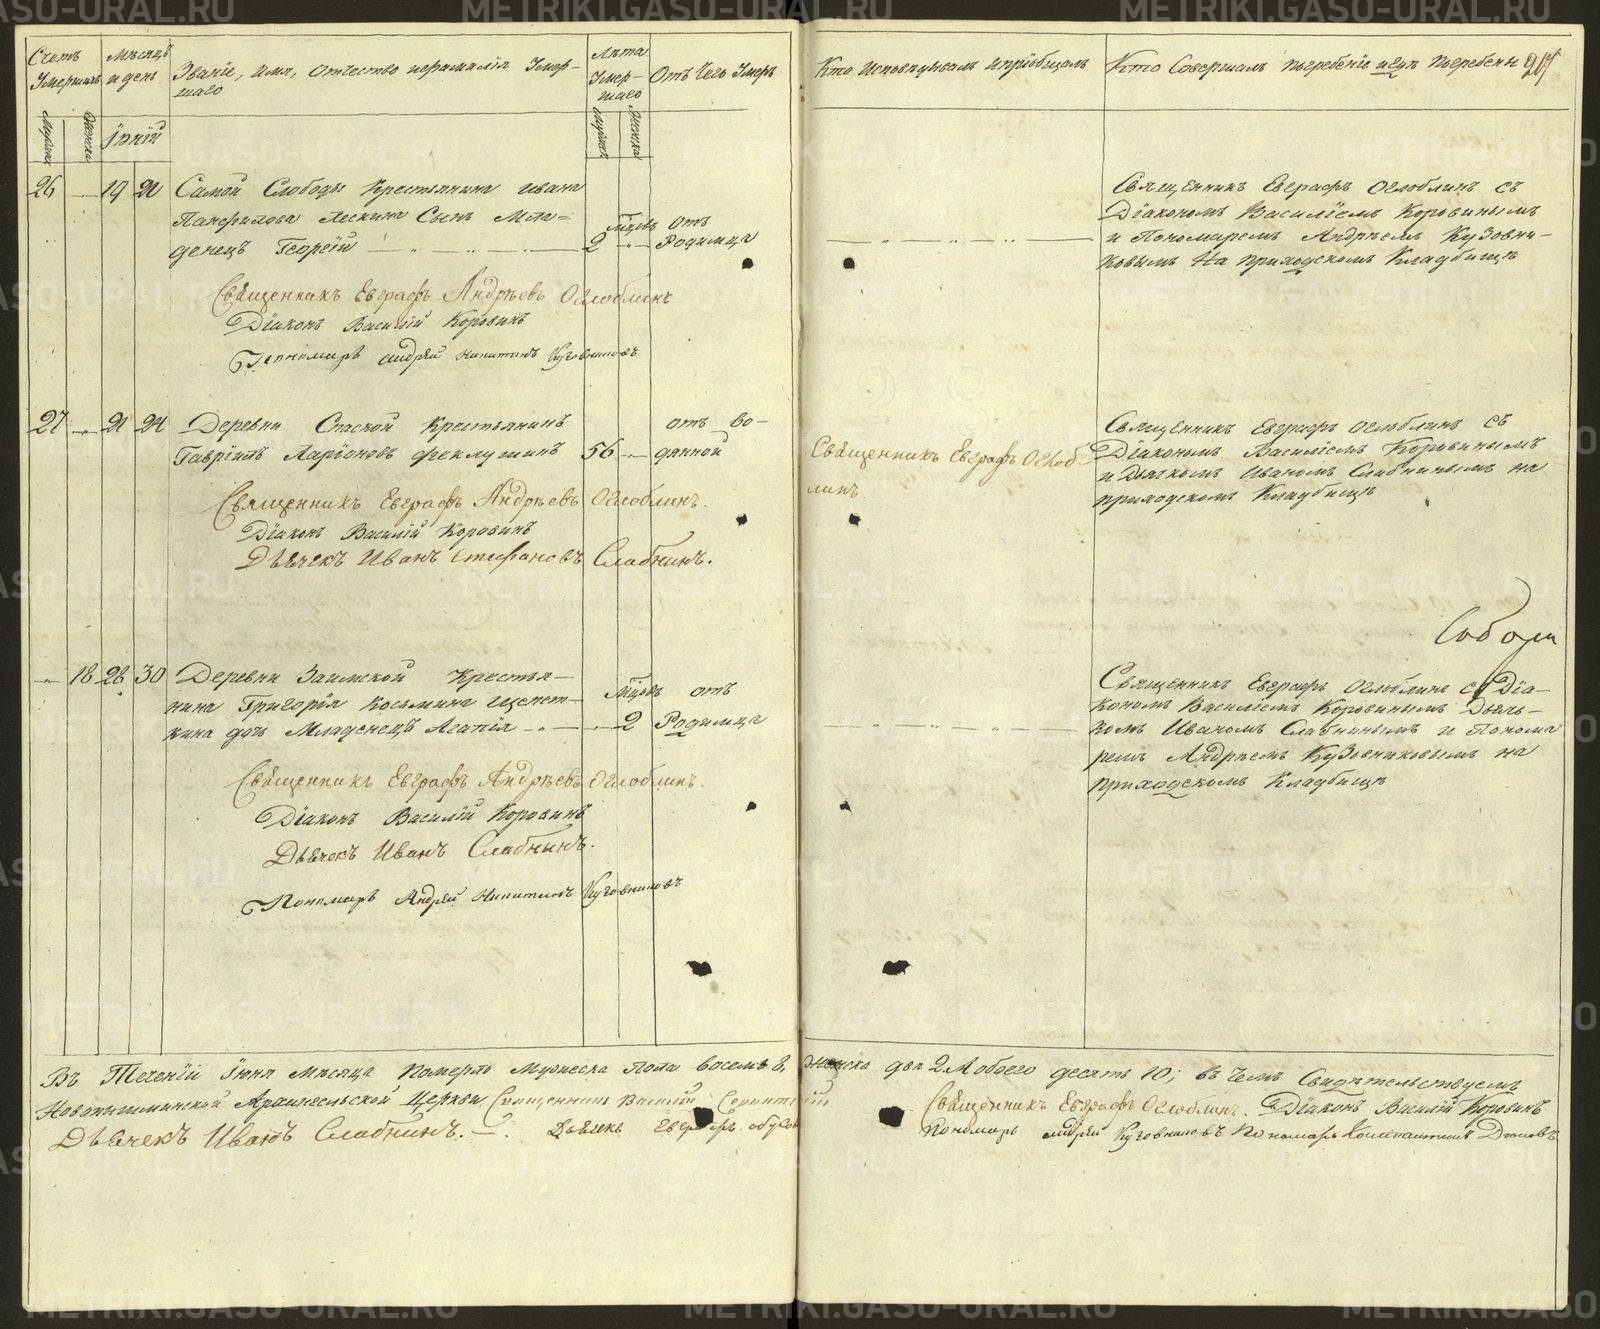 Счетъ Умершихъ
Мѣсяцъ и день
Званіе, имя, отчество и фамилія Умер-
шаго
Лѣта Умер-
шаго
Отъ Чего Умеръ
Кто Исповѣдывалъ и пріобщалъ
Кто Совершалъ погребеніе и гдѣ погребены
Іюній
26 19 21 Самой Слободы Крестьянина Ивана
Панфилова Лескина Сынъ Мла-
денецъ Георгій 2 мѣцовъ отъ
Родимца
Священникъ Евграфъ Оглоблинъ съ
Діакономъ Василіемъ Коровинымъ
и Пономаремъ Андреемъ Кузовни-
ковымъ На приходскомъ Кладбищѣ
Священникъ Евграфъ Андреевъ Оглоблинъ
Діаконъ Василій Коровинъ
Пономарь Андрей Никитинъ Кузовниковъ
27 21 24 Деревни Спаской Крестьянинъ
Гавріилъ Ларіоновъ Феклушинъ 56
отъ во-
дянной
Священникъ Евграфъ Оглоб-
линъ
Священникъ Евграфъ Оглоблинъ съ
Діакономъ Василіемъ Коровинымъ
и Дьячкомъ Иваномъ Слабнинымъ на
приходскомъ Кладбищѣ
Священникъ Евграфъ Андреевъ Оглоблинъ.
Діаконъ Василій Коровинъ
Дьячекъ Иванъ Стефановъ Слабнинъ.
18 28 30 Деревни Заимской Кресть-
нина Григорія Косьмина Щепет-
кина дочь Младенецъ Агапія
мѣцовъ 2
отъ
Родимца
Священникъ Евграфъ Оглоблинъ съ Діа-
кономъ Василіемъ Коровинымъ Дьяч-
комъ Иваномъ Слабнинымъ и Понома
ремъ Андреемъ Кузовниковымъ на
приходскомъ Кладбищѣ
Священникъ Евграфъ Андреевъ Оглоблинъ.
Діаконъ Василій Коровинъ
Дьячекъ Иванъ Слабнинъ.
Пономарь Андрей Никитинъ Кузовниковъ
Въ Теченіи Іюня Мѣсяца Померло Мужеска Пола восемь 8, Женска два 2 А обоего десять 10; въ чемъ Свидѣтельствуемъ
Новопышминской Архангельской Церкви Священникъ Василій
Священникъ Евграфъ Оглоблинъ. Діаконъ Василій Коровинъ
Дьячекъ Иванъ Слабнинъ. Дьячекъ Евграфъ
Пономарь Андрей Кузовниковъ Пономарь Константинъ
METRIKI.GASO-URAL.RU